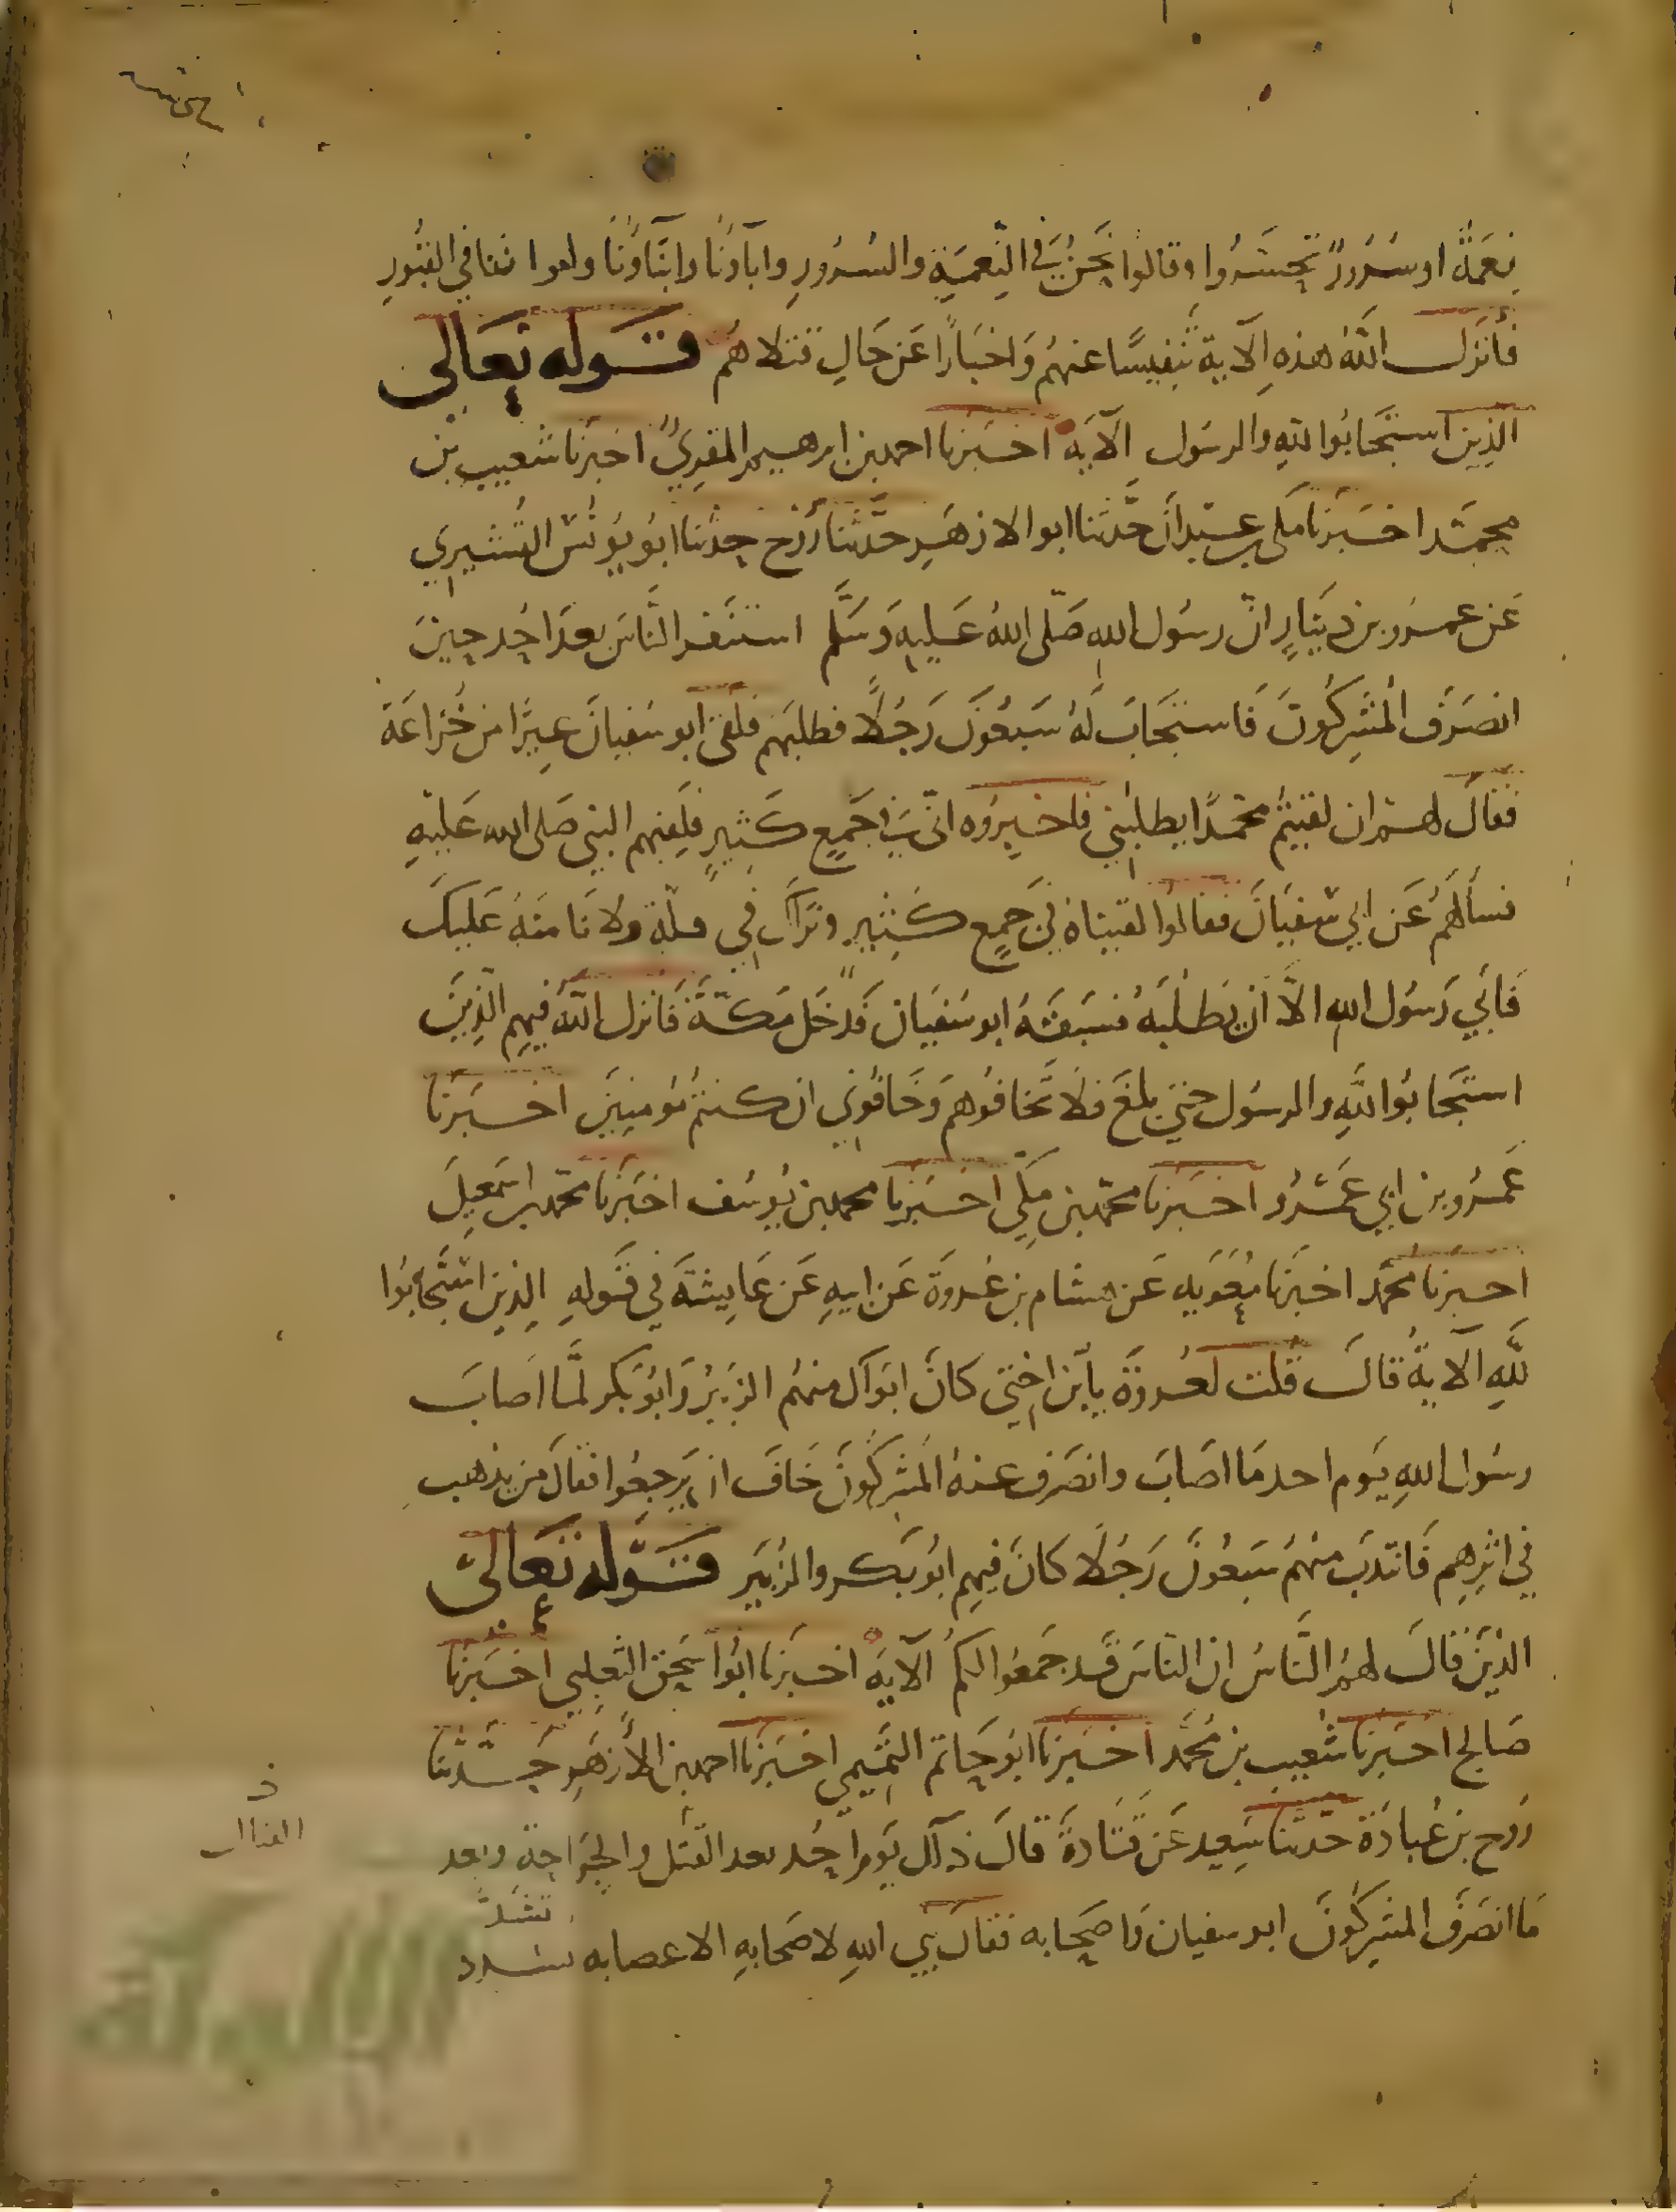 نِعمَةٌ او سُرُورٌ تحسَّرُوا وقالوا نَحنُ في النِّعمَةِ والسُرُورِ واباؤنا وابناؤنا واخواننا في القُبُورِ
فأنزَل اللّهُ هذهِ الآية تنفيسًا عنهُم وَاخبَارًا عَن حَالِ قتلاهُم قوله تعَالى
الذِين استجَابُوا للهِ والرسُول الآيَه اخبَرنا احمد بن ابرهيم المقرِيُ اخبرَنا شعيب بن
محمّد اخبَرنا مكي بن عبدانَ حدَّثنا ابو الازهَر حدَّثنا رَوْح حدثنا ابُو يُونُسَ القُشيرِي
عَن عمرو بن دينَارٍ انّ رسُول اللهِ صَلّى اللهُ عَليهِ وَسَلَّم استنفر النَّاسَ بعدَ احُد حِينَ
انصَرَف المُشرِكُونَ فَاستجَابَ لَهُ سَبعُونَ رَجُلًا فطلبَهم فلقى ابو سُفيانَ عِيرًا من خُزَاعَة
فقالَ لهم ان لقيتُم محمّدًا يطلبُني فاخبِروُه انّي في جَمعٍ كَثيرٍ فلقيهم النبي صَلى الله عَليهِ
فسألهُم عَن ابي سُفيَانَ فقالوا لقيناهُ في جَمعٍ كَثيرٍ ونَراك في قلّة ولا نَامَنهُ عَليكَ
فَابَي رَسُول اللهِ الاَّ ان يَطلُبَهُ فسَبقَهُ ابو سُفيَان فَدخَل مَكّةَ فَانزل اللّهُ فيهِم الّذِينَ
استجَابُوا للّهِ والرسُول حتي بلغَ فلا تَخافُوهُم وَخَافُونِي ان كنتُم مُومنِينَ اخبَرنا
عَمرُو بن ابي عَمْرُو اخبَرنا محمّد بن مكِّي اخبَرنا محمد بن يُوسُف اخبَرنا محمّد بن اسمَعِيلَ
اخبرَنا محمّد اخبَرنا مُعَويه عَن هشام بن عُروَة عَن ابيهِ عَن عَايشَةَ في قَولهِ الذِين استَجَابُوا
للّهِ الآيةُ قالَ قُلت لعُروَةَ يا ابن اختي كانَ ابوَاكَ منهُم الزبَيرُ وَابُو بَكر لمَّا اصَابَ
رسُول اللهِ يَوم احد مَا اصَابَ وانصَرف عنهُ المُشركُونَ خَافَ ان يَرجِعُوا فقالَ مَن يذهب
في اثرِهِم فَانتدبَ منهُم سَبعُونَ رَجُلا كانَ فيهِم ابُو بَكر والزُبَير قوله تعَالى
الذِينَ قالَ لهُم النَّاسُ ان النّاسَ قَد جَمعُوا لكُم الآيَه اخبَرنا ابُو اسحَق الثعلبِي اخبَرنا
صَالح اخبَرنا شُعَيب بن مُحَمَّد اخبَرنا ابُو حَاتم التّمِيمِي اخبَرنا احمد بن الأزهَرِ حَدّثنا
رَوح بن عُبَادَة حدثنا سَعِيد عَن قتَادَةَ قالَ ذاكَ يَوم احُد بعد القَتل والجِرَاحِةِ وبعد
مَا انصَرَفَ المشرِكُونَ ابو سفيان وَاصحَابه فقالَ نبي اللهِ لاصحَابِهِ الا عصابه